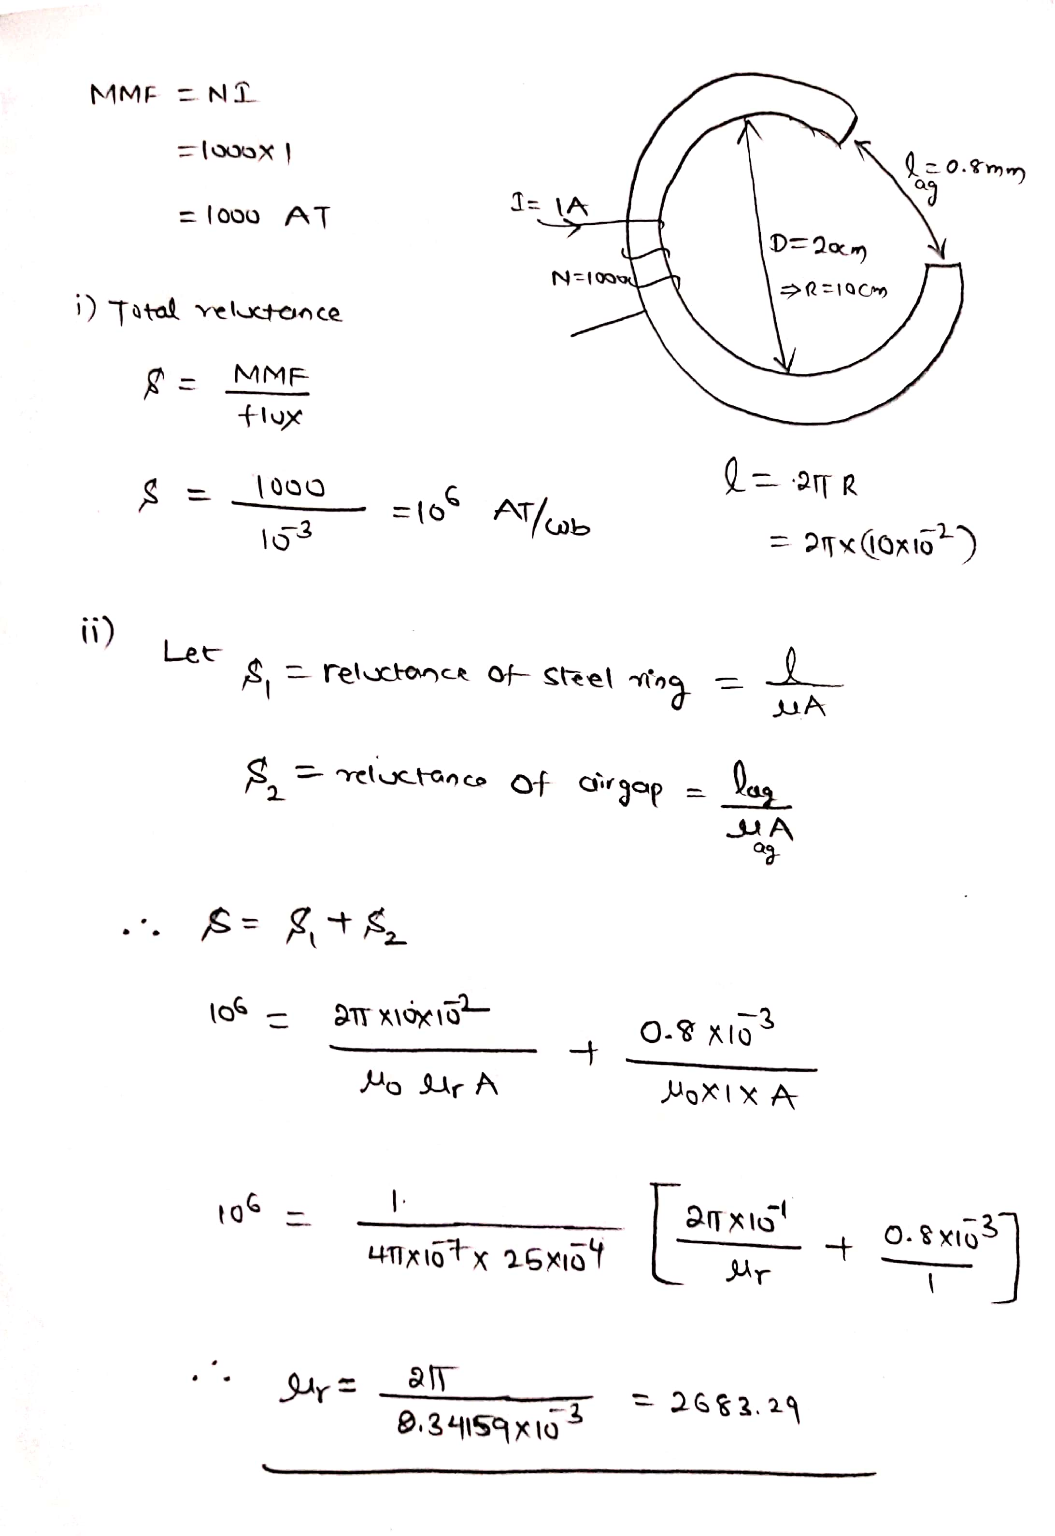 MMF = NI
= 1000 x 1
= 1000 AT
I = 1A
N=1000
D=20cm
⇒R=10cm
l_ag = 0.8mm
i) Total reluctance
S = MMF / flux
S = 1000 / 10^-3 = 10^6 AT/wb
l = 2π R
= 2π x (10x10^-2)
ii) Let S_1 = reluctance of steel ring = l / μA
S_2 = reluctance of airgap = l_ag / μ_ag A
∴ S = S_1 + S_2
10^6 = 2π x10x10^-2 / μ_0 μ_r A + 0.8 x10^-3 / μ_0 x 1 x A
10^6 = 1 / 4π x10^-7 x 25x10^-4 [ 2π x10^-1 / μ_r + 0.8x10^-3 / 1 ]
∴ μ_r = 2π / 2.34159x10^-3 = 2683.29